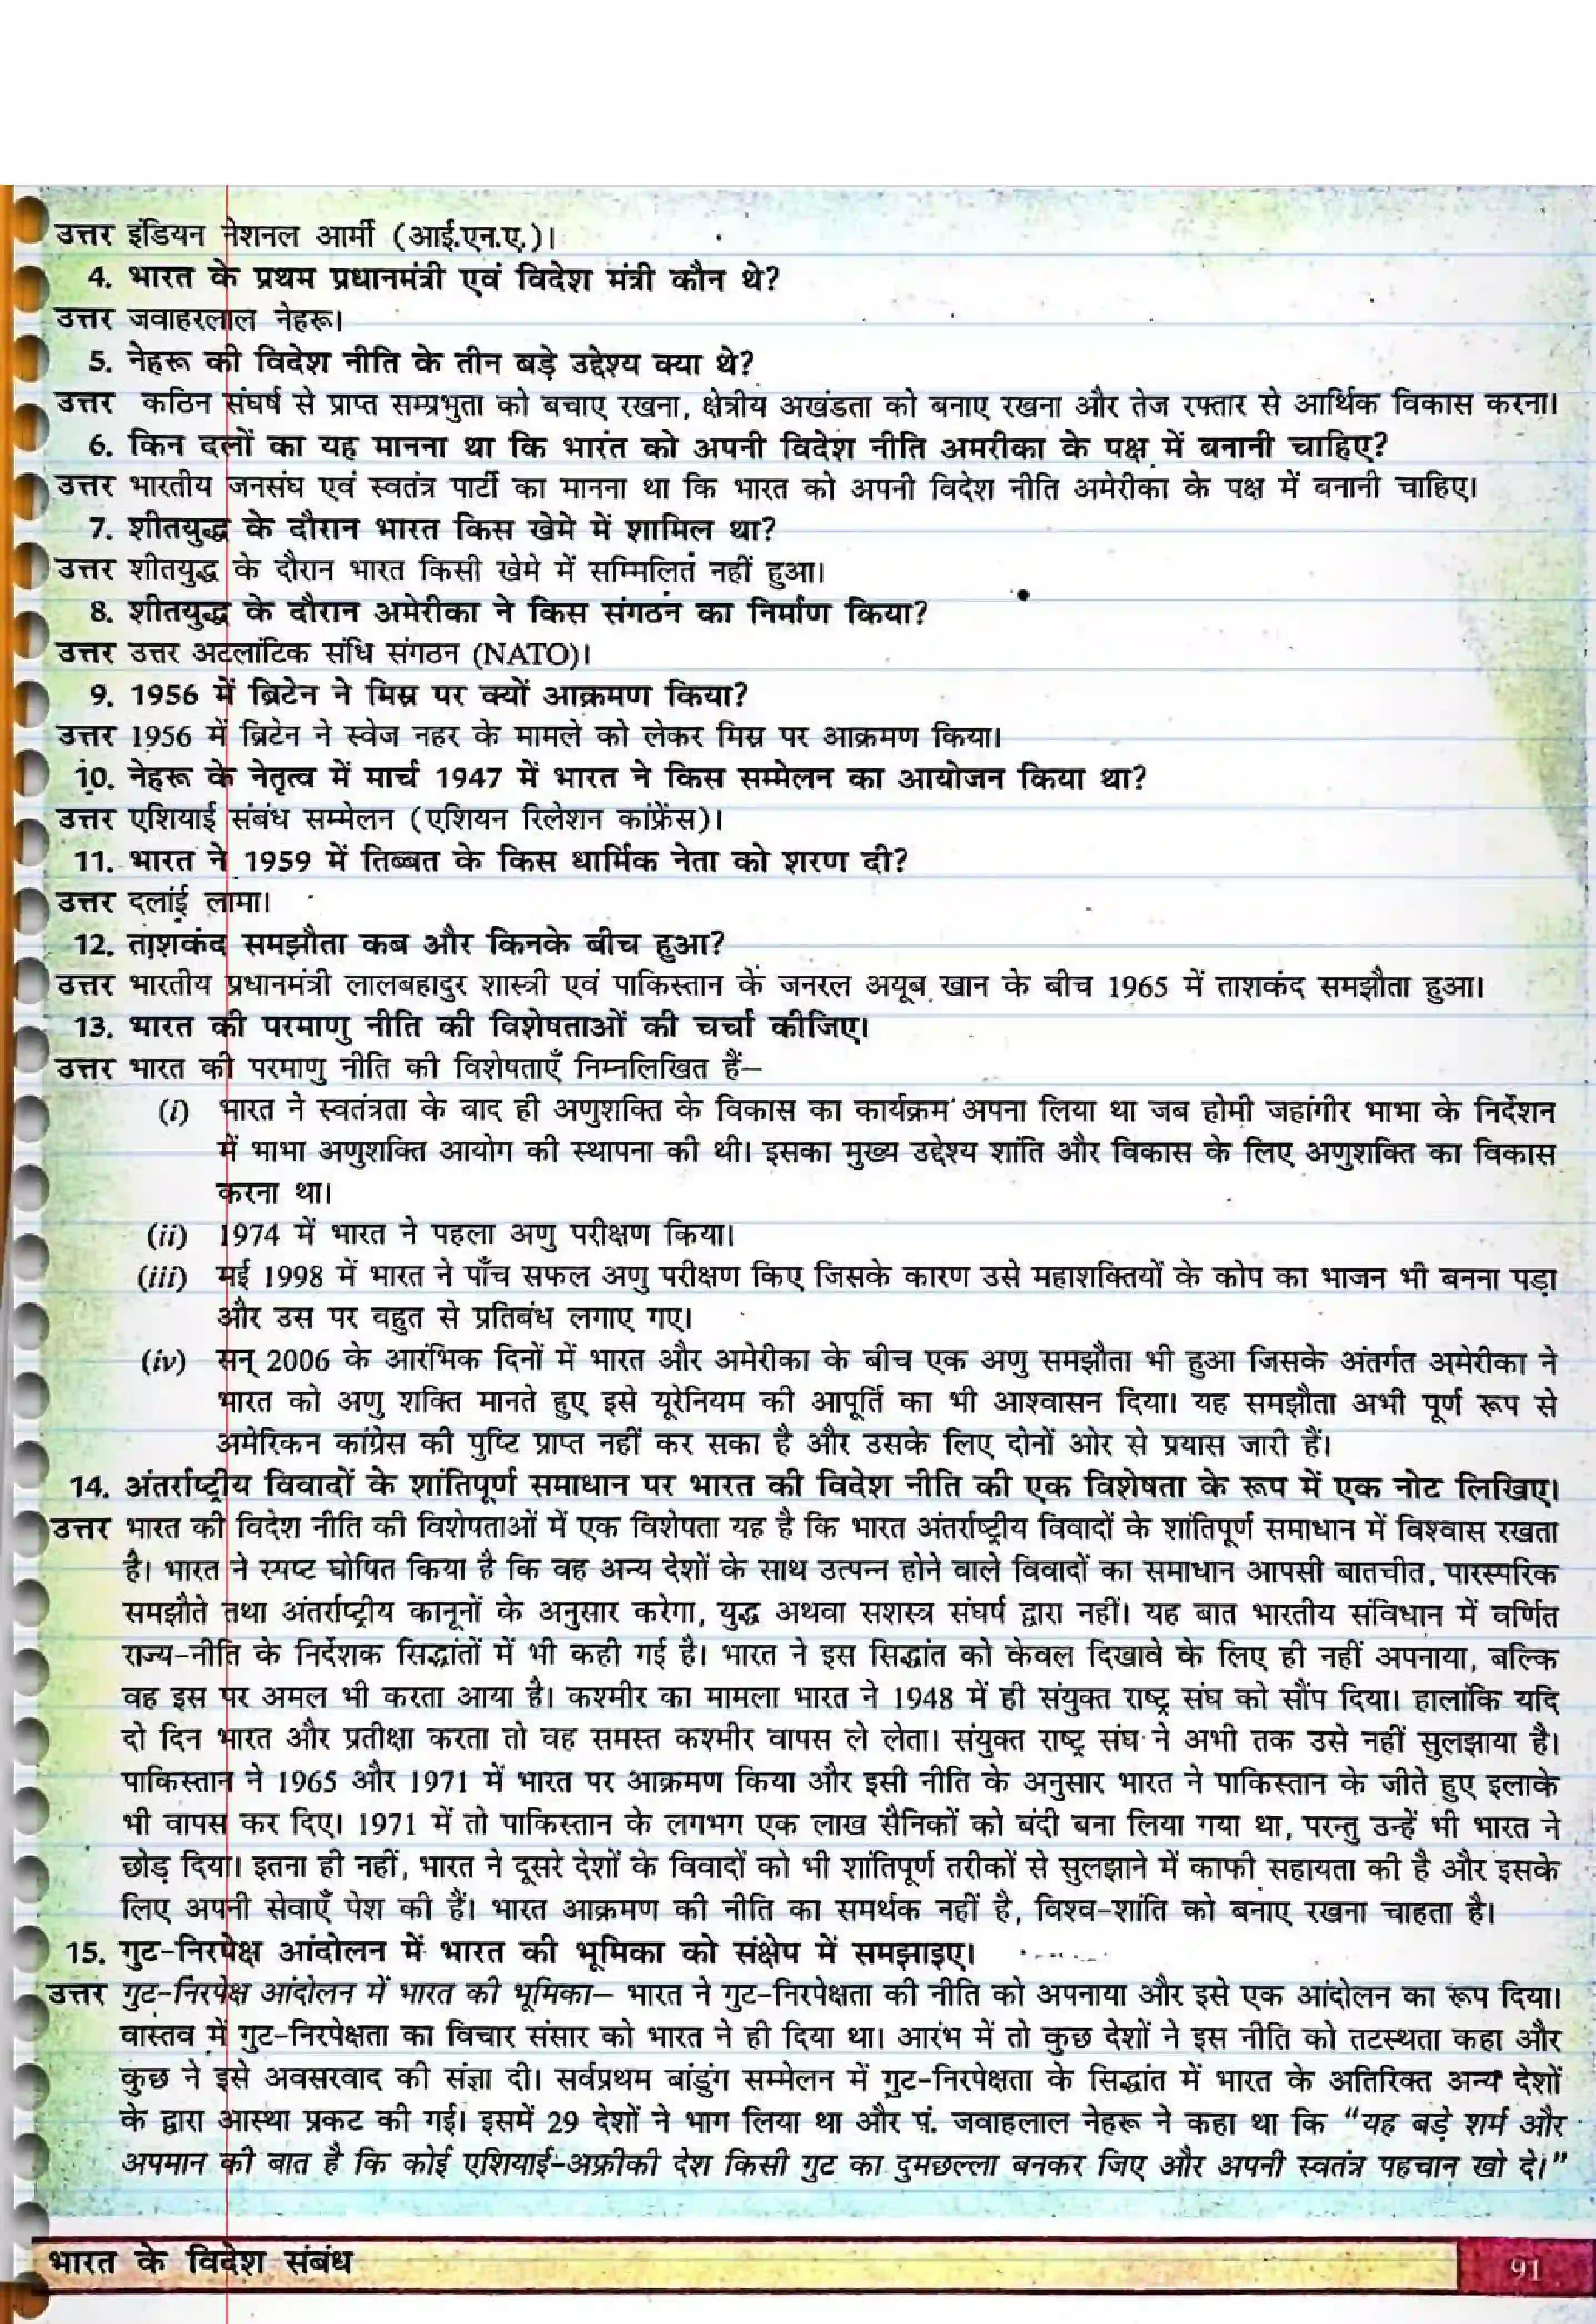 उत्तर इंडियन नेशनल आर्मी (आई.एन.ए.)।
4. भारत के प्रथम प्रधानमंत्री एवं विदेश मंत्री कौन थे?
उत्तर जवाहरलाल नेहरू।
5. नेहरू की विदेश नीति के तीन बड़े उद्देश्य क्या थे?
उत्तर कठिन संघर्ष से प्राप्त सम्प्रभुता को बचाए रखना, क्षेत्रीय अखंडता को बनाए रखना और तेज रफ्तार से आर्थिक विकास करना।
6. किन दलों का यह मानना था कि भारत को अपनी विदेश नीति अमरीका के पक्ष में बनानी चाहिए?
उत्तर भारतीय जनसंघ एवं स्वतंत्र पार्टी का मानना था कि भारत को अपनी विदेश नीति अमेरीका के पक्ष में बनानी चाहिए।
7. शीतयुद्ध के दौरान भारत किस खेमे में शामिल था?
उत्तर शीतयुद्ध के दौरान भारत किसी खेमे में सम्मिलित नहीं हुआ।
8. शीतयुद्ध के दौरान अमेरीका ने किस संगठन का निर्माण किया?
उत्तर उत्तर अटलांटिक संधि संगठन (NATO)।
9. 1956 में ब्रिटेन ने मिस्र पर क्यों आक्रमण किया?
उत्तर 1956 में ब्रिटेन ने स्वेज नहर के मामले को लेकर मिस्र पर आक्रमण किया।
10. नेहरू के नेतृत्व में मार्च 1947 में भारत ने किस सम्मेलन का आयोजन किया था?
उत्तर एशियाई संबंध सम्मेलन (एशियन रिलेशन कांफ्रेंस)।
11. भारत ने 1959 में तिब्बत के किस धार्मिक नेता को शरण दी?
उत्तर दलाई लामा।
12. ताशकंद समझौता कब और किनके बीच हुआ?
उत्तर भारतीय प्रधानमंत्री लालबहादुर शास्त्री एवं पाकिस्तान के जनरल अयूब खान के बीच 1965 में ताशकंद समझौता हुआ।
13. भारत की परमाणु नीति की विशेषताओं की चर्चा कीजिए।
उत्तर भारत की परमाणु नीति की विशेषताएँ निम्नलिखित हैं–
(i) भारत ने स्वतंत्रता के बाद ही अणुशक्ति के विकास का कार्यक्रम अपना लिया था जब होमी जहांगीर भाभा के निर्देशन
में भाभा अणुशक्ति आयोग की स्थापना की थी। इसका मुख्य उद्देश्य शांति और विकास के लिए अणुशक्ति का विकास
करना था।
(ii) 1974 में भारत ने पहला अणु परीक्षण किया।
(iii) मई 1998 में भारत ने पाँच सफल अणु परीक्षण किए जिसके कारण उसे महाशक्तियों के कोप का भाजन भी बनना पड़ा
और उस पर बहुत से प्रतिबंध लगाए गए।
(iv) सन् 2006 के आरंभिक दिनों में भारत और अमेरीका के बीच एक अणु समझौता भी हुआ जिसके अंतर्गत अमेरीका ने
भारत को अणु शक्ति मानते हुए इसे यूरेनियम की आपूर्ति का भी आश्वासन दिया। यह समझौता अभी पूर्ण रूप से
अमेरिकन कांग्रेस की पुष्टि प्राप्त नहीं कर सका है और उसके लिए दोनों ओर से प्रयास जारी हैं।
14. अंतर्राष्ट्रीय विवादों के शांतिपूर्ण समाधान पर भारत की विदेश नीति की एक विशेषता के रूप में एक नोट लिखिए।
उत्तर भारत की विदेश नीति की विशेषताओं में एक विशेषता यह है कि भारत अंतर्राष्ट्रीय विवादों के शांतिपूर्ण समाधान में विश्वास रखता
है। भारत ने स्पष्ट घोषित किया है कि वह अन्य देशों के साथ उत्पन्न होने वाले विवादों का समाधान आपसी बातचीत, पारस्परिक
समझौते तथा अंतर्राष्ट्रीय कानूनों के अनुसार करेगा, युद्ध अथवा सशस्त्र संघर्ष द्वारा नहीं। यह बात भारतीय संविधान में वर्णित
राज्य-नीति के निर्देशक सिद्धांतों में भी कही गई है। भारत ने इस सिद्धांत को केवल दिखावे के लिए ही नहीं अपनाया, बल्कि
वह इस पर अमल भी करता आया है। कश्मीर का मामला भारत ने 1948 में ही संयुक्त राष्ट्र संघ को सौंप दिया। हालांकि यदि
दो दिन भारत और प्रतीक्षा करता तो वह समस्त कश्मीर वापस ले लेता। संयुक्त राष्ट्र संघ ने अभी तक उसे नहीं सुलझाया है।
पाकिस्तान ने 1965 और 1971 में भारत पर आक्रमण किया और इसी नीति के अनुसार भारत ने पाकिस्तान के जीते हुए इलाके
भी वापस कर दिए। 1971 में तो पाकिस्तान के लगभग एक लाख सैनिकों को बंदी बना लिया गया था, परन्तु उन्हें भी भारत ने
छोड़ दिया। इतना ही नहीं, भारत ने दूसरे देशों के विवादों को भी शांतिपूर्ण तरीकों से सुलझाने में काफी सहायता की है और इसके
लिए अपनी सेवाएँ पेश की हैं। भारत आक्रमण की नीति का समर्थक नहीं है, विश्व-शांति को बनाए रखना चाहता है।
15. गुट-निरपेक्ष आंदोलन में भारत की भूमिका को संक्षेप में समझाइए।
उत्तर गुट-निरपेक्ष आंदोलन में भारत की भूमिका– भारत ने गुट-निरपेक्षता की नीति को अपनाया और इसे एक आंदोलन का रूप दिया।
वास्तव में गुट-निरपेक्षता का विचार संसार को भारत ने ही दिया था। आरंभ में तो कुछ देशों ने इस नीति को तटस्थता कहा और
कुछ ने इसे अवसरवाद की संज्ञा दी। सर्वप्रथम बांडुंग सम्मेलन में गुट-निरपेक्षता के सिद्धांत में भारत के अतिरिक्त अन्य देशों
के द्वारा आस्था प्रकट की गई। इसमें 29 देशों ने भाग लिया था और पं. जवाहलाल नेहरू ने कहा था कि “यह बड़े शर्म और
अपमान की बात है कि कोई एशियाई-अफ्रीकी देश किसी गुट का दुमछल्ला बनकर जिए और अपनी स्वतंत्र पहचान खो दे।”
भारत के विदेश संबंध
91